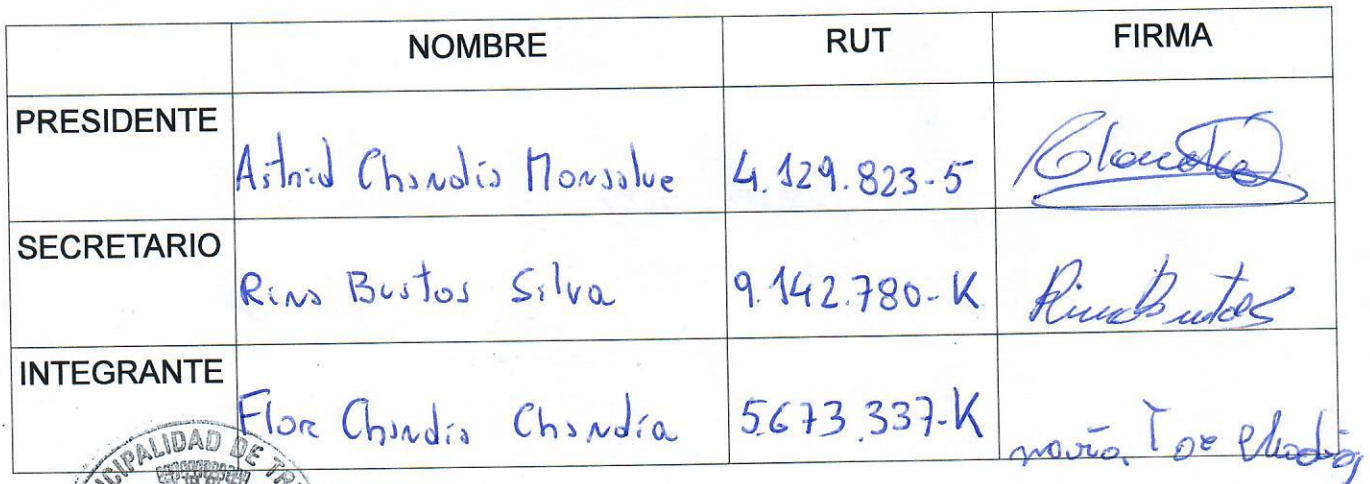 NOMBRE RUT FIRMA
PRESIDENTE
Astrid Chandía Monsalve 4.129.823-5
SECRETARIO
Rina Bustos Silva 9.142.780-K Rina Bustos
INTEGRANTE
Flor Chandía Chandía 5.673.337-K maría
CIPALIDAD DE TR